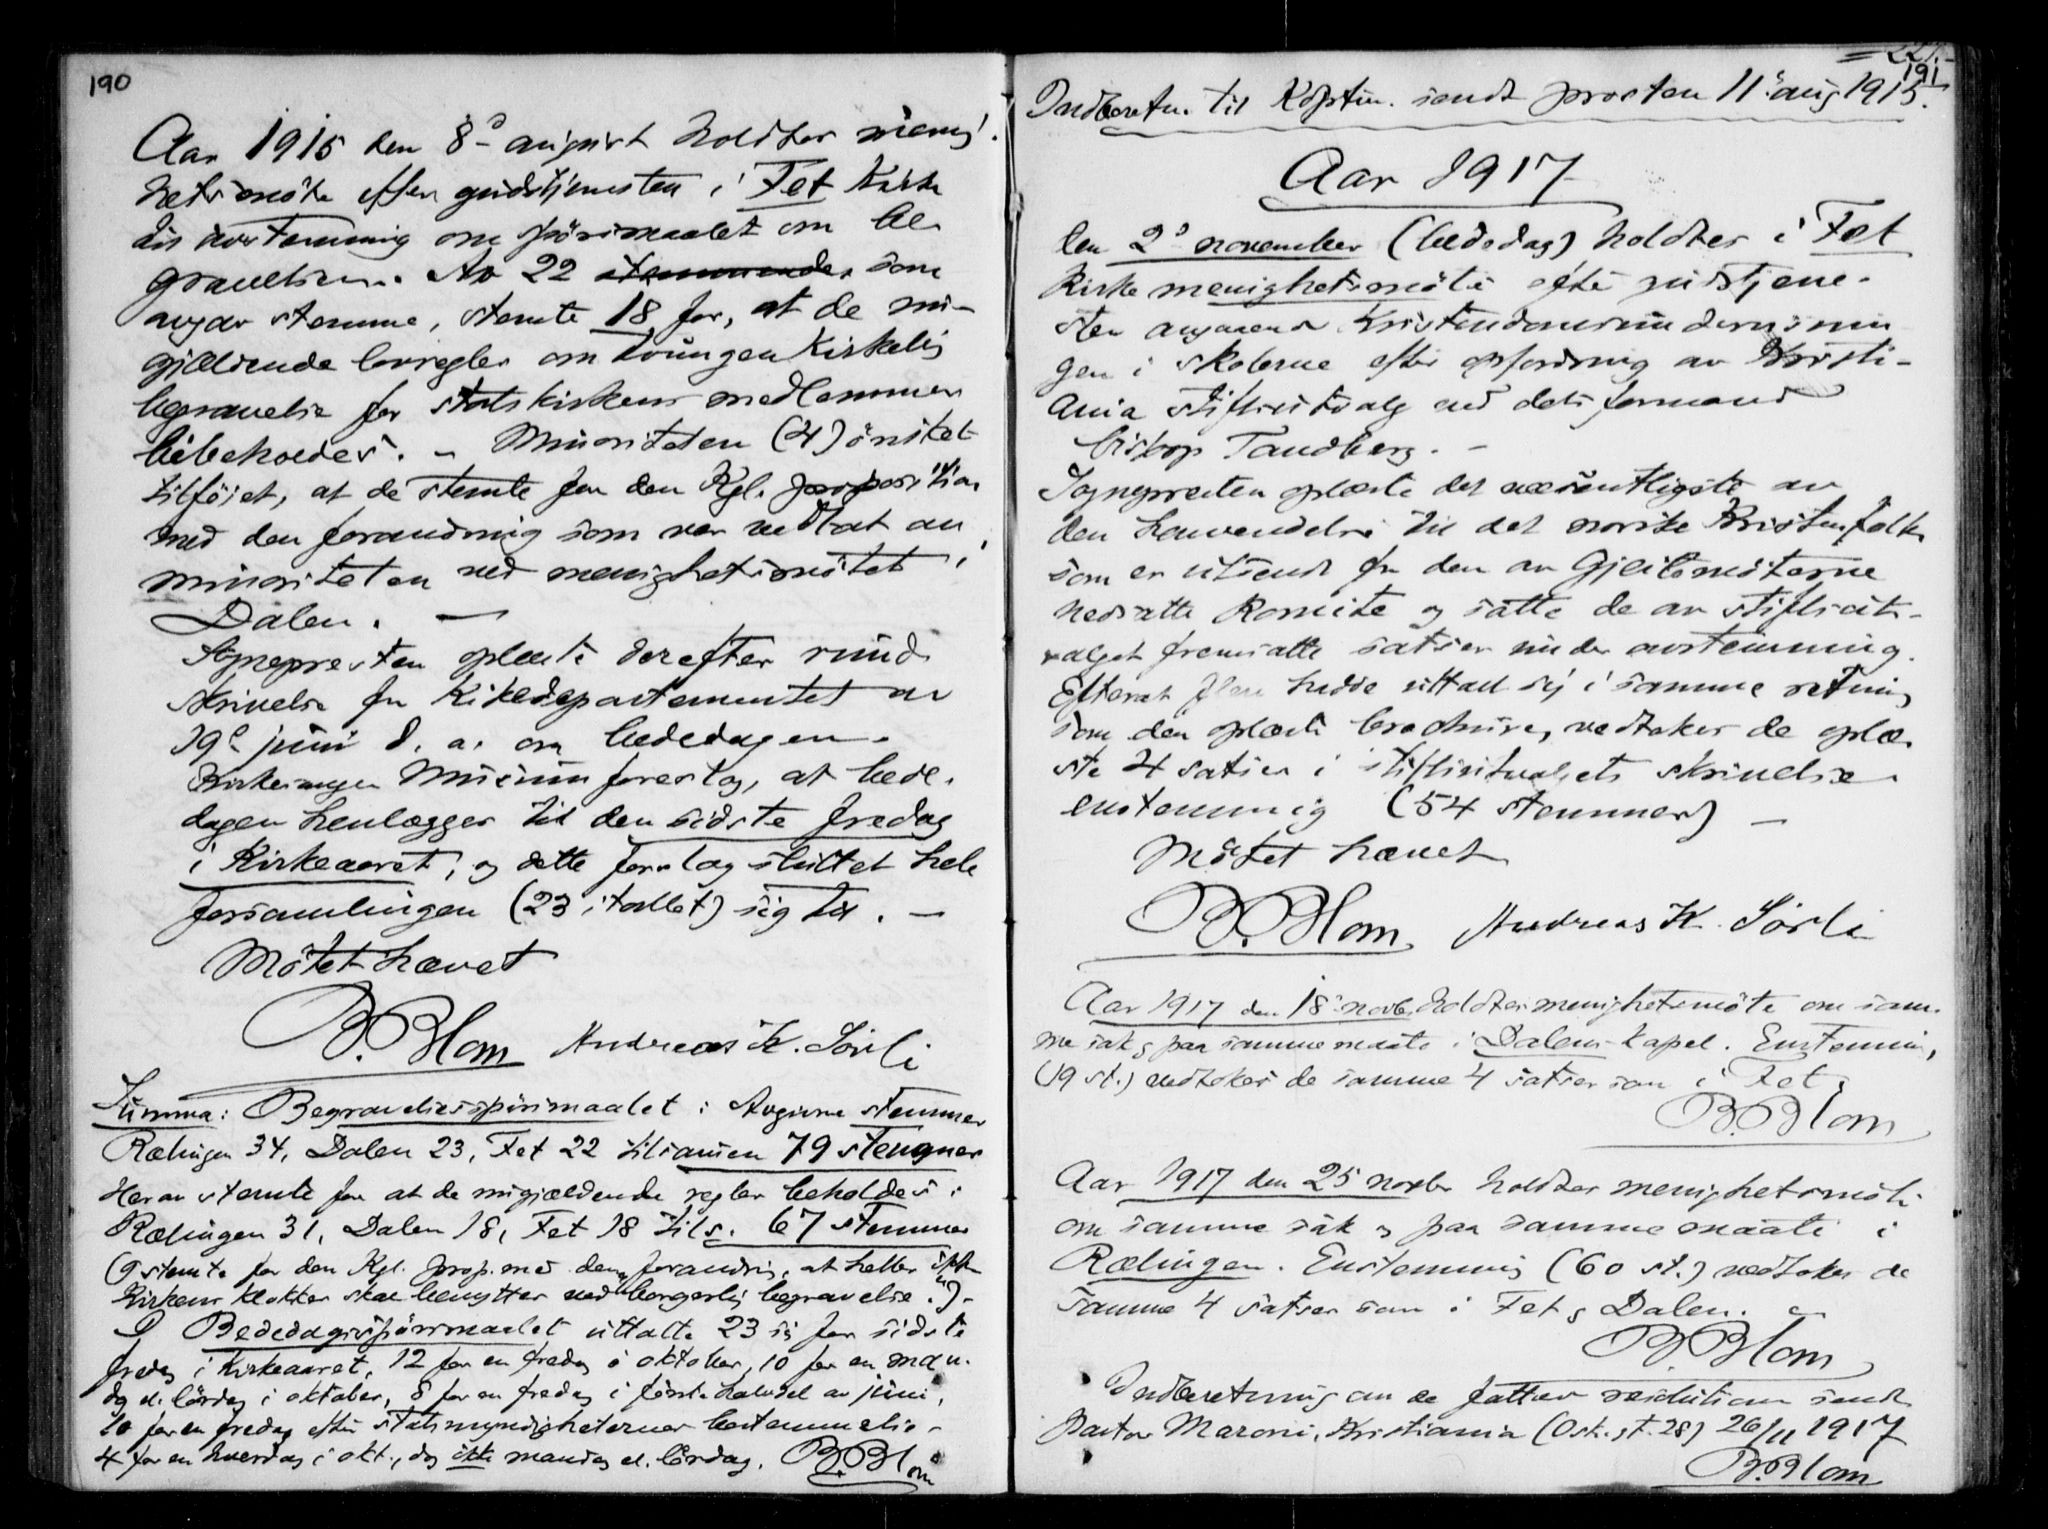 190
Aar 1915 den 8de august holdtes menig-
hetsmøte efter gudstjenesten i Fet kirke
til avstemning om spørsmaalet om be-
gravelsen. Av 22 stemmende som
avgav stemme, stemte 18 for, at de nu-
gjældende lovregler om tvungen kirkelig
begravelse for statskirkens medlemmer
bibeholdes. – Minoriteten (4) ønsket
tilføiet, at de stemte for den Kgl. proposition
med den forandring som var vedtat av
minoriteten ved menighetsmøtet i
Dalen. —
Sognepresten oplæste derefter rund-
skrivelse fra Kirkedepartementet av
19de juni d. a. om bededagen.
Kirkesanger Musum foreslog, at bede-
dagen henlægges til den sidste fredag
i kirkeaaret, og dette forslag sluttet hele
forsamlingen (23 i tallet) sig til. —
Møtet hævet
B. Blom Andreas K. Sørli
Summa: Begravelsesspørsmaalet: Avgivne stemmer
Rælingen 34, Dalen 23, Fet 22 tilsammen 79 stemmer
Herav stemte for at de nugjældende regler beholdes:
Rælingen 31, Dalen 18, Fet 18 tils. 67 stemmer
(9 stemte for den Kgl. prop. med den forandring, at heller ikke
kirkens klokker skal benyttes ved borgerlig begravelse.) -
I Bededagsspørsmaalet uttalte 23 sig for sidste
fredag i kirkeaaret, 12 for en fredag i oktober, 10 for en man-
dag el. lørdag i oktober, 8 for en fredag i første halvdel av juni,
10 for en fredag efter statsmyndigheternes bestemmelse -
4 for en hverdag i okt., dog ikke mandag el. lørdag. B. Blom
227.
191
Indberetn. til Kdptm. sendt prosten 11te aug 1915.
Aar 1917
den 2de november (bededag) holdtes i Fet
kirke menighetsmøte efter gudstjene-
sten angaaende Kristendomsundervisnin
gen i skolerne efter opfordring av Kristi-
ania stiftsutvalg ved dets formand
biskop Tandberg. -
Sognepresten oplæste det væsentligste av
den henvendelse til det norske kristenfolk
som er utsendt fra den av Gjeilomøterne
nedsatte komite og satte de av stiftsut-
valget fremsatte satser under avstemning.
Efterat flere hadde uttalt sig i samme retning
som den oplæste brochure, vedtokes de oplæ-
ste 4 satser i stiftsutvalgets skrivelse
enstemmig (54 stemmer) —
Møtet hævet
B. Blom Andreas K. Sørli
Aar 1917 den 18de novbr. holdtes menighetsmøte om sam-
me sak og paa samme maate i Dalens kapel. Enstemmig
(19 st.) vedtokes de samme 4 satser som i Fet.
B. Blom
Aar 1917 den 25 novbr holdtes menighetsmøte
om samme sak og paa samme maate i
Rælingen. Enstemmig (60 st.) vedtokes de
samme 4 satser som i Fet og Dalen.
B. Blom
Indberetning om de fattede resolutioner sendt
Pastor Maroni, Kristiania (Osk. gt. 28) 26/11 1917
B. Blom